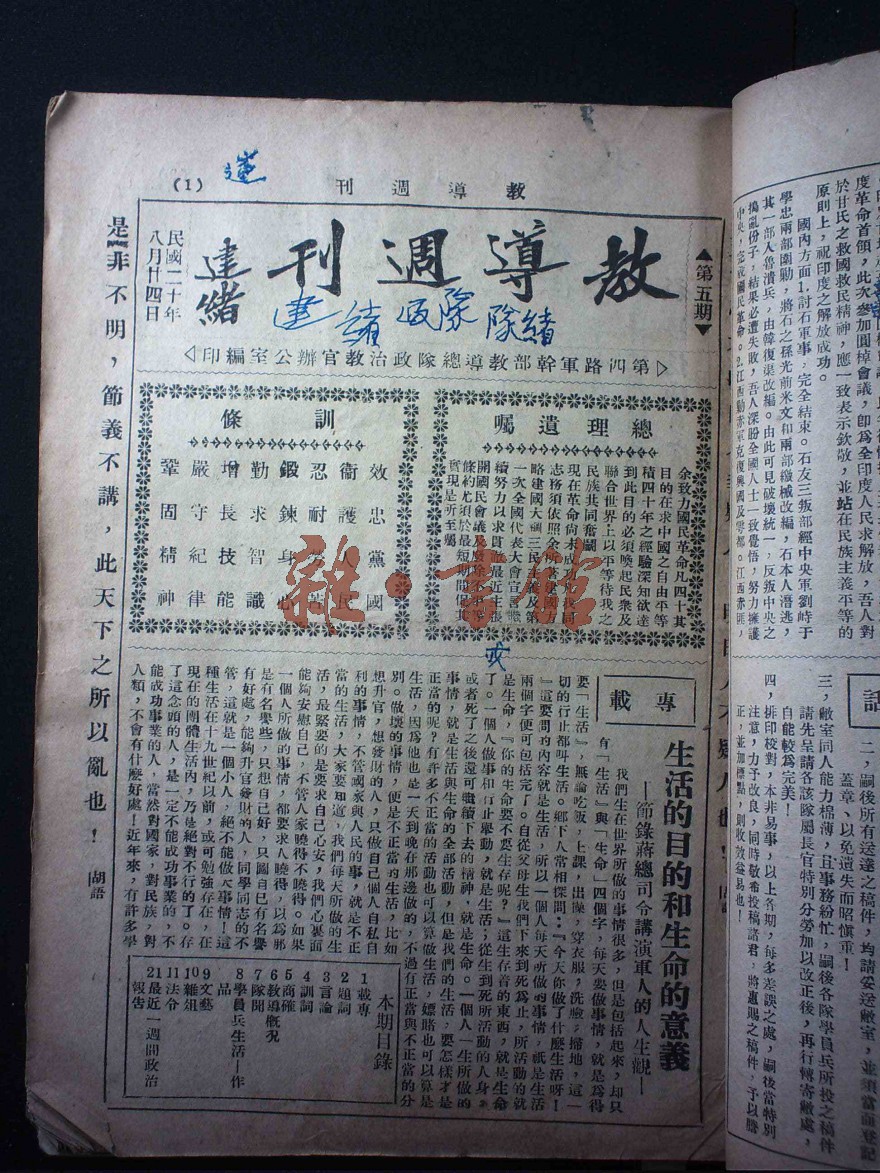 教導週刊
(1)
▲第五期▼
教導週刊
建緒
民國二十年
八月廿四日
第四路軍幹部教導總隊政治教官辦公室編印
總理遺囑
余致力國民革命凡四十年其
目的在求中國之自由平等
積四十年之經驗深知欲達
到此目的必須喚起民衆及
聯合世界上以平等待我之
民族共同奮鬭
現在革命尚未成功凡我同
志務須依照余所著建國方
略建國大綱三民主義及第
一次全國代表大會宣言繼
續努力以求貫澈最近主張
開國民會議及廢除不平等
條約尤須於最短期間促其
實現是所至囑
訓條
效忠黨國
衞護人民
忍耐勞苦
鍛鍊身心
勤求智識
增長技能
嚴守紀律
鞏固精神
是非不明，節義不講，此天下之所以亂也！
胡語
專載
生活的目的和生命的意義
—節錄蔣總司令講演軍人的人生觀—
我們生在世界所做的事情很多，但是包括起來，却只
有「生活」與「生命」四個字，每天要做事情，就是爲得
要「生活」，無論吃飯，上課，出操，穿衣服，洗臉，掃地，這一
切的行止都叫生活。鄉下人常相探問：『今天你做了什麼生活呀！
』這要問的內容就是生活，所以一個人每天所做的事情，祇是生活
兩個字便可包括完了。自從父母生我們下來到死爲止，所活動的就
是生命，『你的生命要不要生存呢？』這生存着的東西，就是生命
了。一個人做事和行止舉動，就是生活；從生到死所活動的人身
或者死了之後還可繼續下去的精神，就是生命。一個人一生所做的
事情，就是生活與生命的全部活動，但是我們的生活，要怎樣才是
正常的呢？有許多不正常的活動也可以算做生活，嫖賭也可以算是
生活，因爲他也是一天到晚在那邊做的，不過有正當與不正當的分
別。做壞的事情，便是不正當的生活，比如
想升官，想發財的人，只做自己個人自私自
利的事情，不管國家與人民的事，就是不正
當的生活，大家要知道，我們每天所做的生
活，最緊要的是要求自己心安，我們心裏面
能夠安慰自己，不管人家曉得不曉得。如果
一個人所做的事情，都要求人曉得，以爲那
是有名譽些，只想自己好，只圖自己有名譽
有好處，能夠升官發財的人，同學同志的不
管，這就是一個小人，絕不能做大事情！這
種生活在十九世紀以前，或可勉強存在，在
現在的團體生活內，乃是絕對不行的了。存
了這念頭的人，是一定不能成功事業的，不
能成功事業的人，當然對國家，對民族，對
人類，不會有什麼好處！近年來，有許多學
本期目錄
1載專
2題詞
3言論
4訓詞
5商確
6教導概況
7隊聞
8學員兵生活—作
品
9文藝
10雜俎
11法令
12最近一週間政治
報告
度革命首領，此次參加圓棹會議，卽爲全印度人民求解放，吾人對
於甘民之救國救民精神，應一致表示欽敬，並站在民族主義平等的
原則上，祝印度之解放成功。
國內方面1.討石軍事，完全結束。石友三叛部經中央軍劉峙于
學忠兩部圍勦，將石之孫光前米文和兩部繳械改編，石本人潛逃，
其一部入魯潰兵，由韓復渠改編。由此可見破壞統一，反叛中央之
搗亂份子，結果必遭失敗，吾人深盼全國人士一致覺悟，努力擁護
中央，完成國民革命。
話
二，嗣後所有送達之稿件，均請妥送敝室，並須當面登記
蓋章、以免遺失而昭愼重！
三，敝室同人能力棉薄，且事務紛忙，嗣後各隊學員兵所投之稿件
請先呈請各該隊屬長官特別分勞加以改正後，再行轉寄敝處，
自能較爲完美！
四，排印校對，本非易事，以上各期，每多差誤之處，嗣後當特別
注意，力予改良，同時敬希投稿諸君，將惠賜之稿件，予以謄
正，並加標點，則收效益易也！
雜·書館